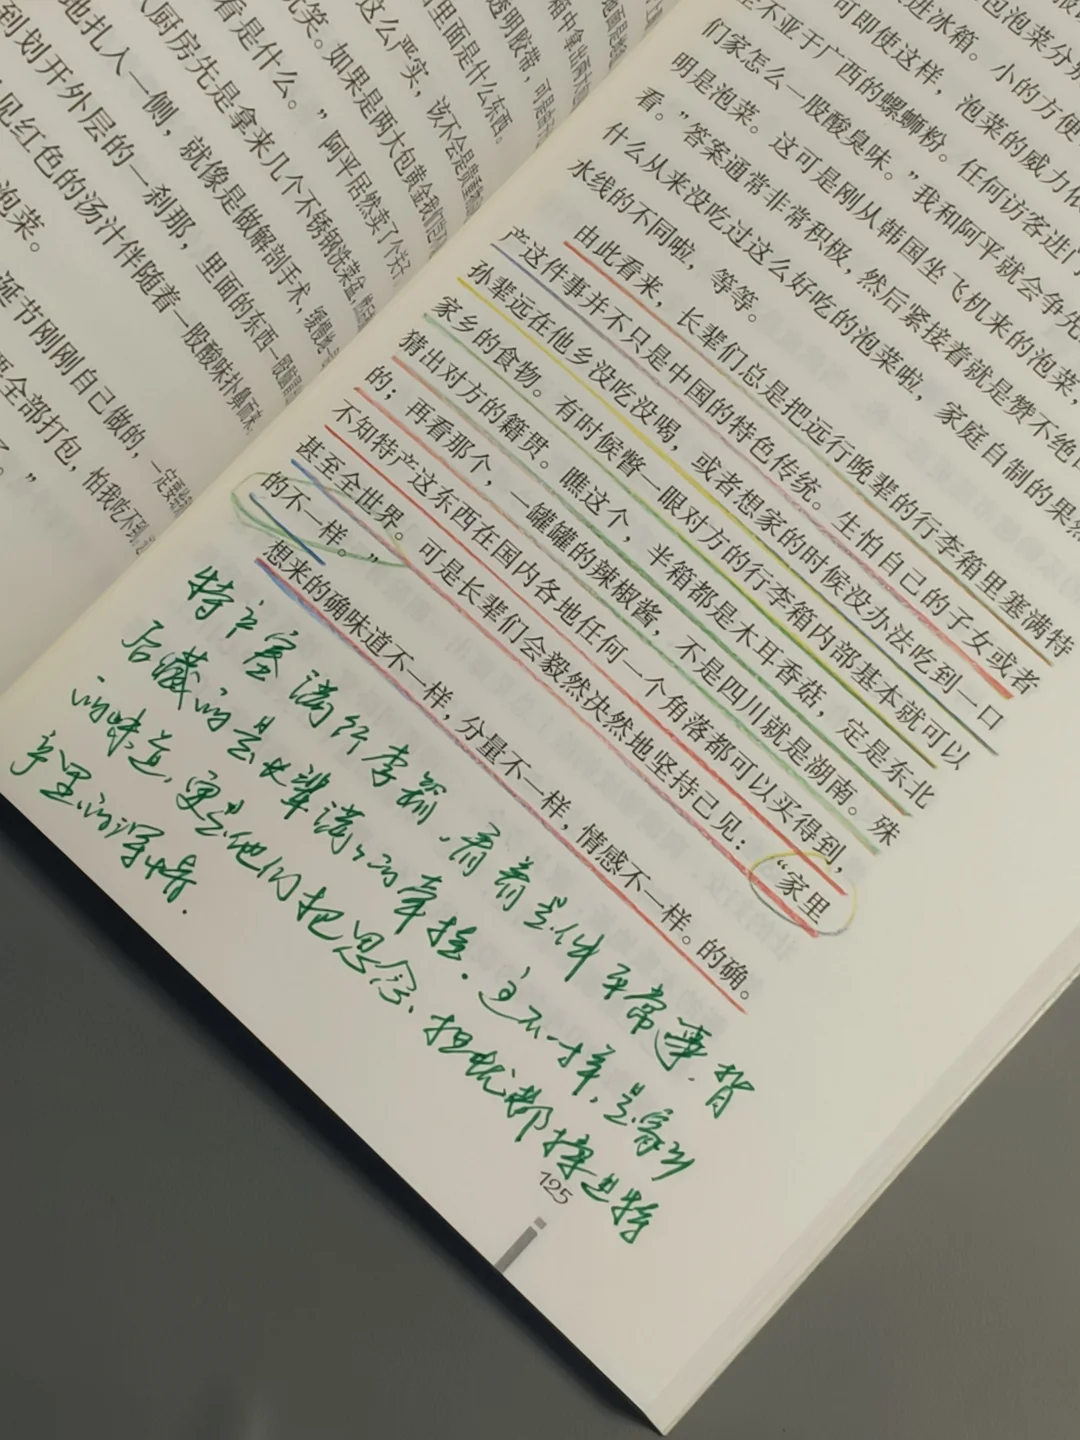 看是什么。”阿平居然卖了个关子
厨房先是拿来几个不锈钢洗菜盆,
地扎人一侧,就像是做解剖手术,缓慢地
到划开外层的一刹那,里面的东西一
见红色的汤汁伴随着一股酸味扑鼻而来,
泡菜。
诞节刚刚自己做的,一定要
全部打包,怕我吃不到
玩笑。如果是两大包黄金我们
这么严实,该不会是贵重
里面是什么东西。
透明胶带,可是
箱中拿出两大包
包泡菜分别
进冰箱。小的方便
可即使这样,泡菜的威力依
至不亚于广西的螺蛳粉。任何访客进门
们家怎么一股酸臭味。”我和阿平就会争先
明是泡菜。这可是刚从韩国坐飞机来的泡菜,
看。”答案通常非常积极,然后紧接着就是赞不绝
什么从来没吃过这么好吃的泡菜啦,家庭自制的果然
水线的不同啦,等等。
由此看来,长辈们总是把远行晚辈的行李箱里塞满特
产这件事并不只是中国的特色传统。生怕自己的子女或者
孙辈远在他乡没吃没喝,或者想家的时候没办法吃到一口
家乡的食物。有时候瞥一眼对方的行李箱内部基本就可以
猜出对方的籍贯。瞧这个,半箱都是木耳香菇,定是东北
的;再看那个,一罐罐的辣椒酱,不是四川就是湖南。殊
不知特产这东西在国内各地任何一个角落都可以买得到,
甚至全世界。可是长辈们会毅然决然地坚持己见:“家里
的不一样。”
想来的确味道不一样,分量不一样,情感不一样。的确。
特产塞满行李箱,看着是件平常事,背
后藏的是长辈满满的牵挂。这不一样,是家的
的味道,更是他们把思念、担忧都揉进特
产里的深情.
125